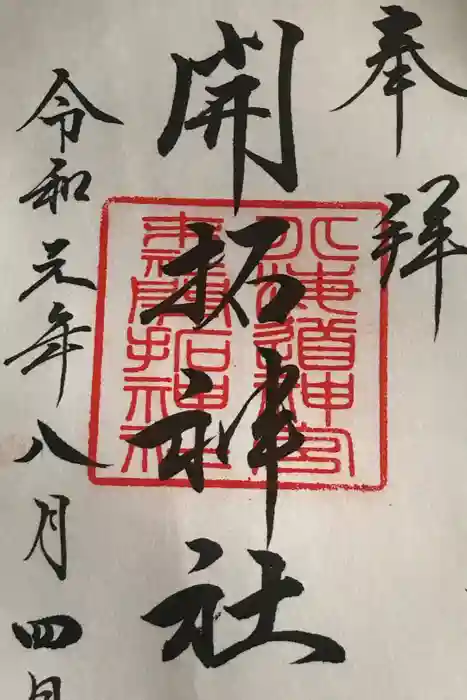 奉拝
開拓神社
令和元年八月四日
北海道神宮
末社開拓神社